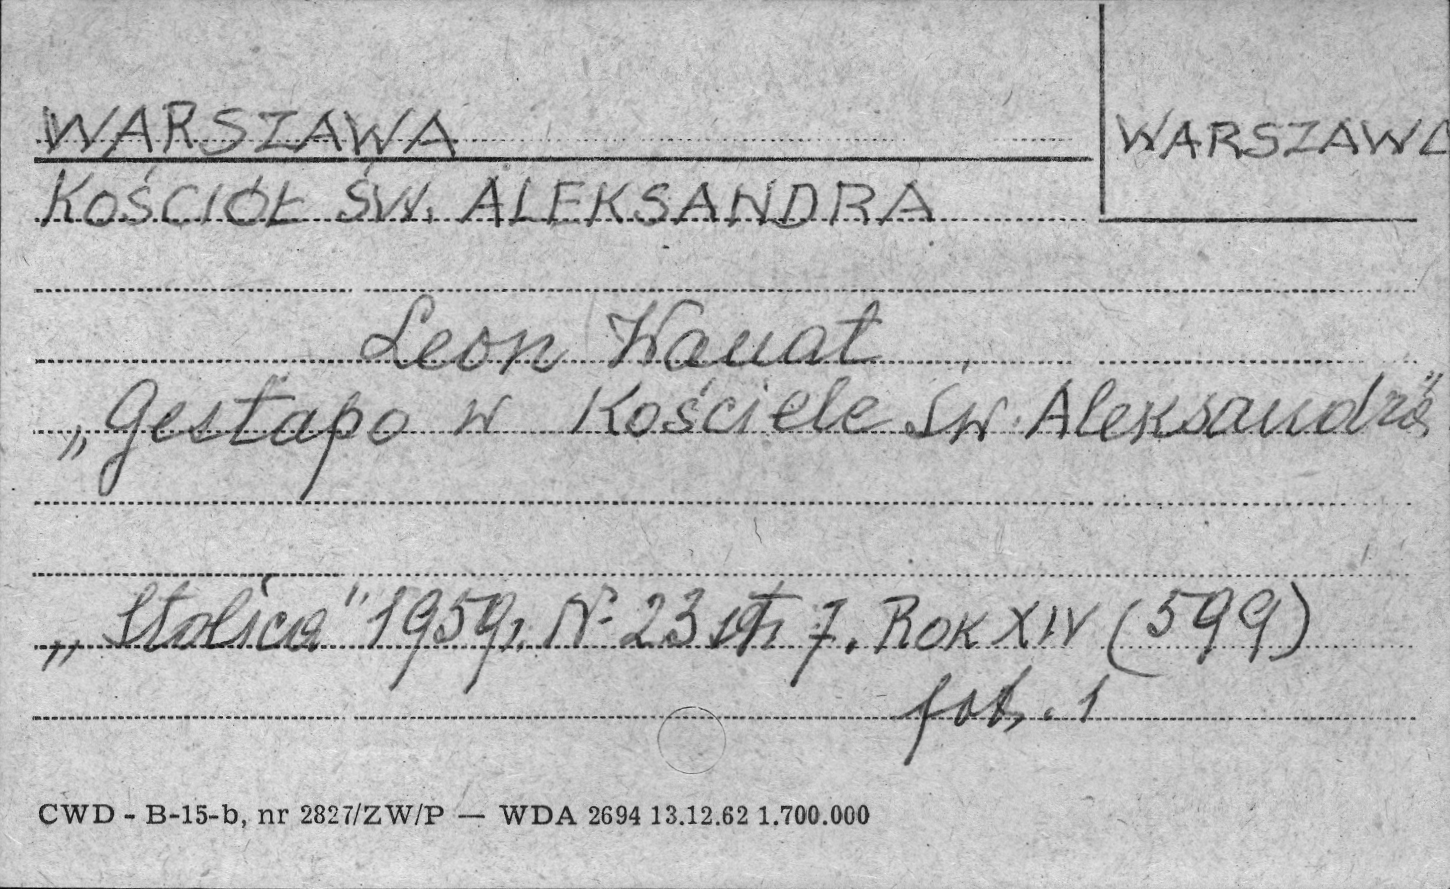 WARSZAWA
WARSZAWA
KOŚCIÓŁ ŚW. ALEKSANDRA
Leon Wanat
„Gestapo w Kościele św. Aleksandra"
„Stolica" 1959, N- 23 str. 7. ROK XIV (599)
fot. 1
CWD - B-15-b, nr 2827/ZW/P — WDA 2694 13.12.62 1.700.000